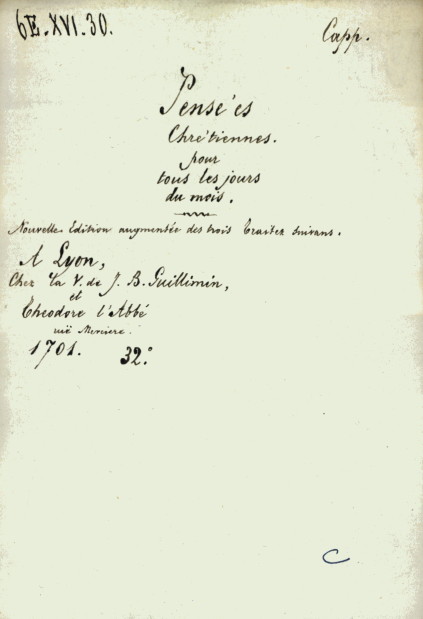 6E.XVI.30.
Capp.
Pensées
Chrétiennes.
pour
tous les jours
du mois.
Nouvelle Edition augmentée des trois Traitez suivans.
A Lyon,
Chez la V. de J. B. Guillimin,
et
Theodore l'Abbé
ruë Merciere.
1701.
32.°
C